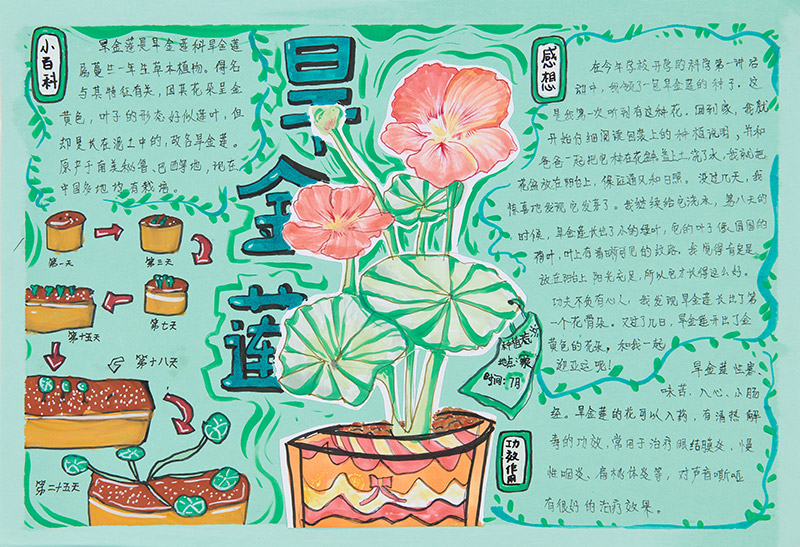 小百科
旱金莲是旱金莲科旱金莲
属蔓生一年生草本植物。得名
与其特征有关，因其花朵呈金
黄色，叶子的形态好似莲叶，但
却是长在泥土中的，故名旱金莲。
原产于南美秘鲁、巴西等地，现在
中国各地均有栽培。
旱金莲
第一天
第三天
第七天
第十五天
第十八天
第二十五天
感想
在今年学校开学的科学第一讲活
动中，我领了一包旱金莲的种子。这
是我第一次听到有这种花。回到家，我就
开始仔细阅读包装上的种植说明，并和
爸爸一起把它种在花盆里浇了水，我就把
花盆放在阳台上，保证通风和日照。没过几天，我
惊喜地发现它发芽了。我继续给它浇水，第八天的
时候，旱金莲长出了小的绿叶，它的叶子像圆圆的
荷叶，叶上有着清晰可见的纹路。我觉得肯定是
放在阳台上阳光充足，所以它才长得这么好。
功夫不负有心人，我发现旱金莲长出了第
一个花骨朵。又过了几日，旱金莲开出了金
黄色的花朵。和我一起
地点：家
时间：7月
功效作用
旱金莲性寒、
味苦、入心、小肠
经。旱金莲的花可以入药，有清热解
毒的功效，常用于治疗眼结膜炎、慢
性咽炎、扁桃体炎等，对声音嘶哑
有很好的治疗效果。